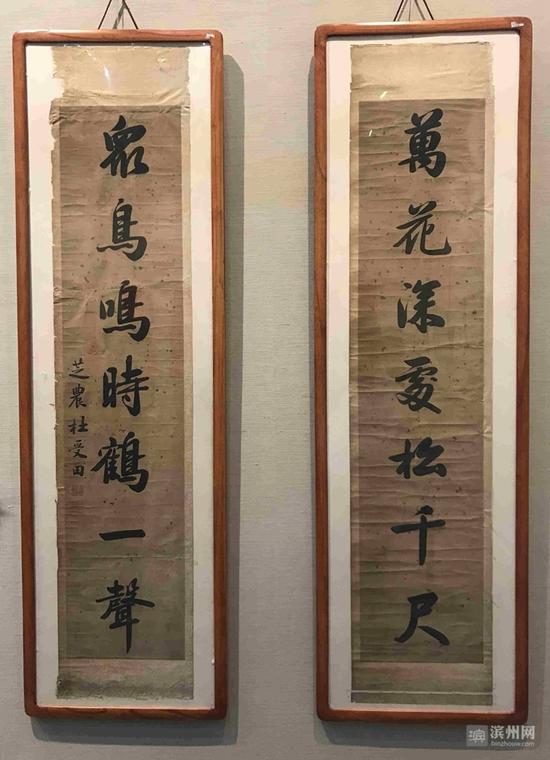 萬花深處松千尺
眾鳥鳴時鶴一聲
芝農杜受田
滨州网
binzhouw.com